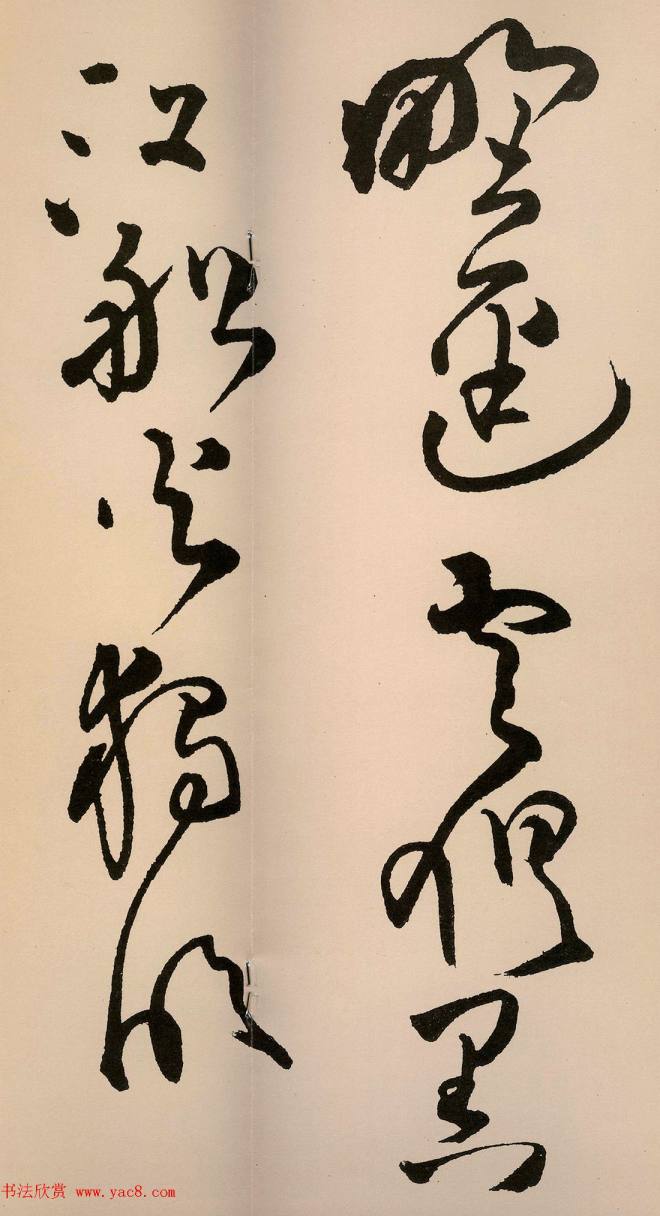 野逕雲俱黑
江船火獨明
书法欣赏 www.yac8.com